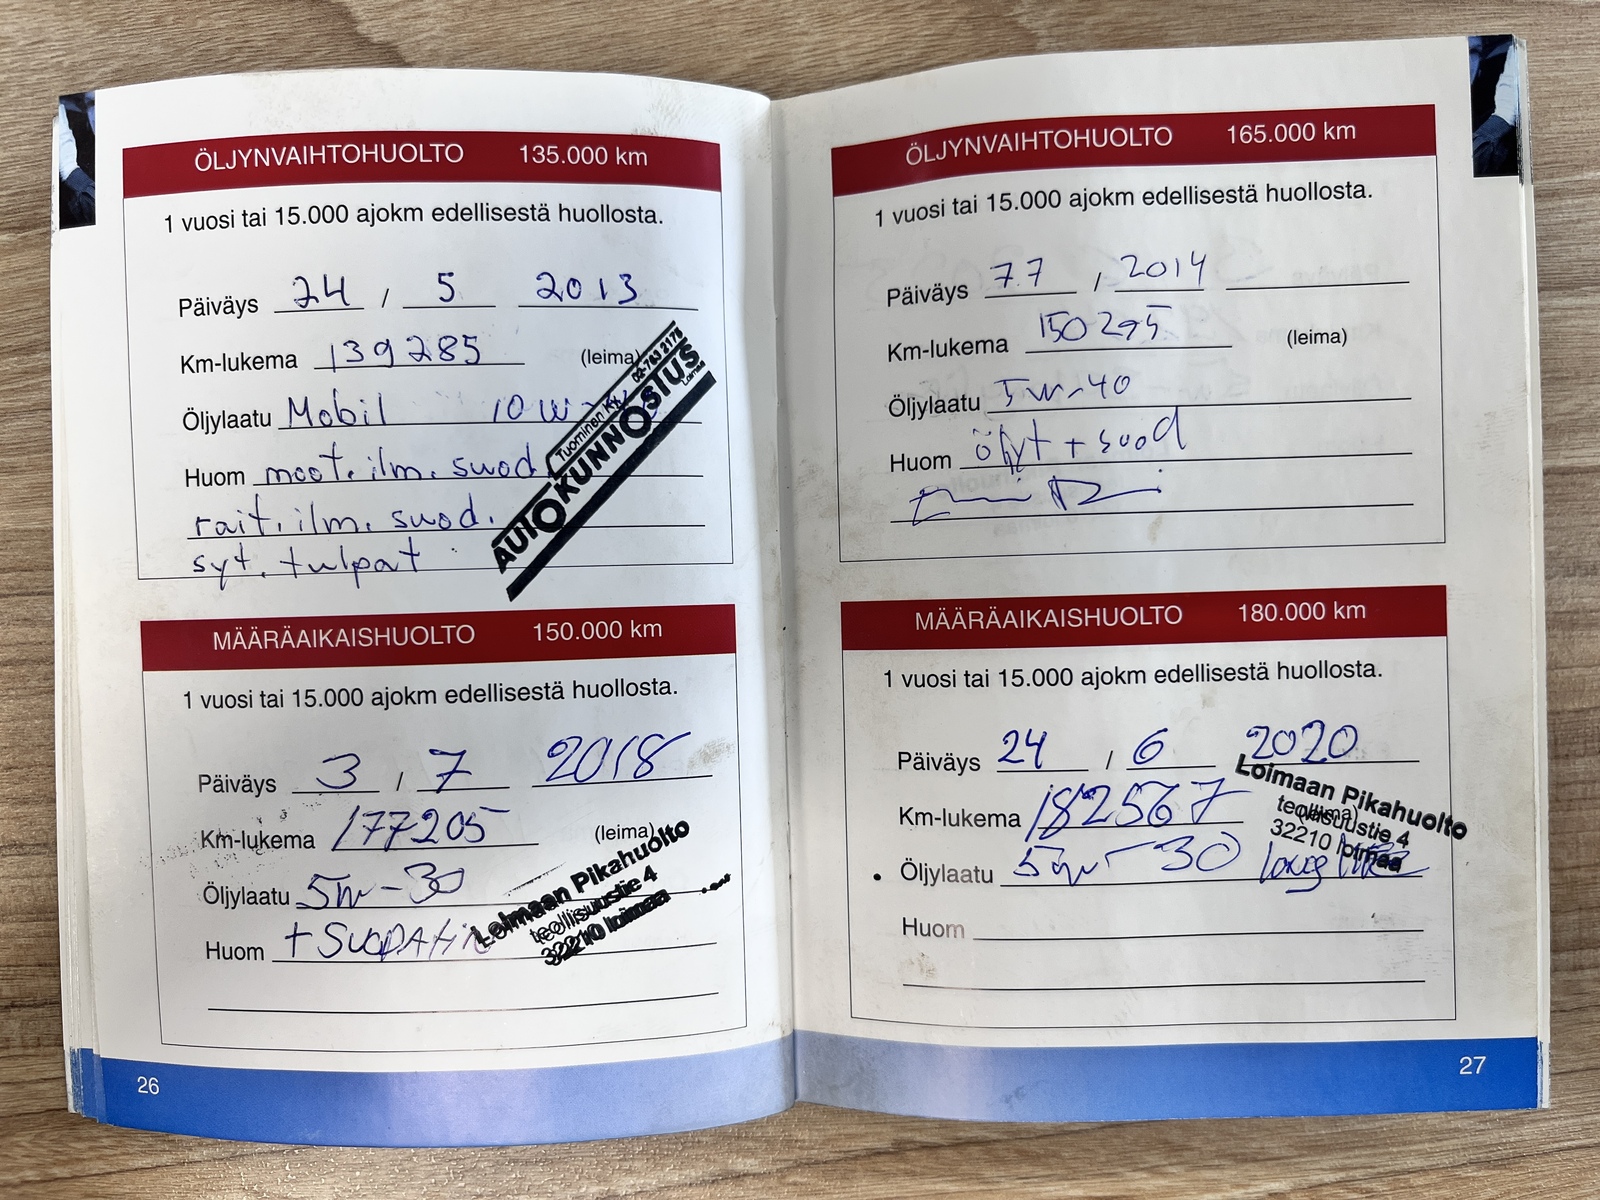 ÖLJYNVAIHTOHUOLTO 135.000 km
1 vuosi tai 15.000 ajokm edellisestä huollosta.
Päiväys 24 / 5 2013
Km-lukema 139285 (leima)
Öljylaatu Mobil 10w-
Huom moot. ilm. suod.
rait. ilm. suod.
syt. tulpat
Tuominen Ky 02-763 2175
AUTOKUNNOSIUS LOIMAA
MÄÄRÄAIKAISHUOLTO 150.000 km
1 vuosi tai 15.000 ajokm edellisestä huollosta.
Päiväys 3 / 7 2018
Km-lukema 177205 (leima)
Öljylaatu 5w-30
Huom + SUODATIN
Loimaan Pikahuolto
teollisuustie 4
32210 loimaa
26
ÖLJYNVAIHTOHUOLTO 165.000 km
1 vuosi tai 15.000 ajokm edellisestä huollosta.
Päiväys 7.7 / 2014
Km-lukema 150295 (leima)
Öljylaatu 5w-40
Huom öljyt + suod
MÄÄRÄAIKAISHUOLTO 180.000 km
1 vuosi tai 15.000 ajokm edellisestä huollosta.
Päiväys 24 / 6 2020
Km-lukema 182567 (leima)
Öljylaatu 5w-30 long life
Huom
Loimaan Pikahuolto
teollisuustie 4
32210 loimaa
27